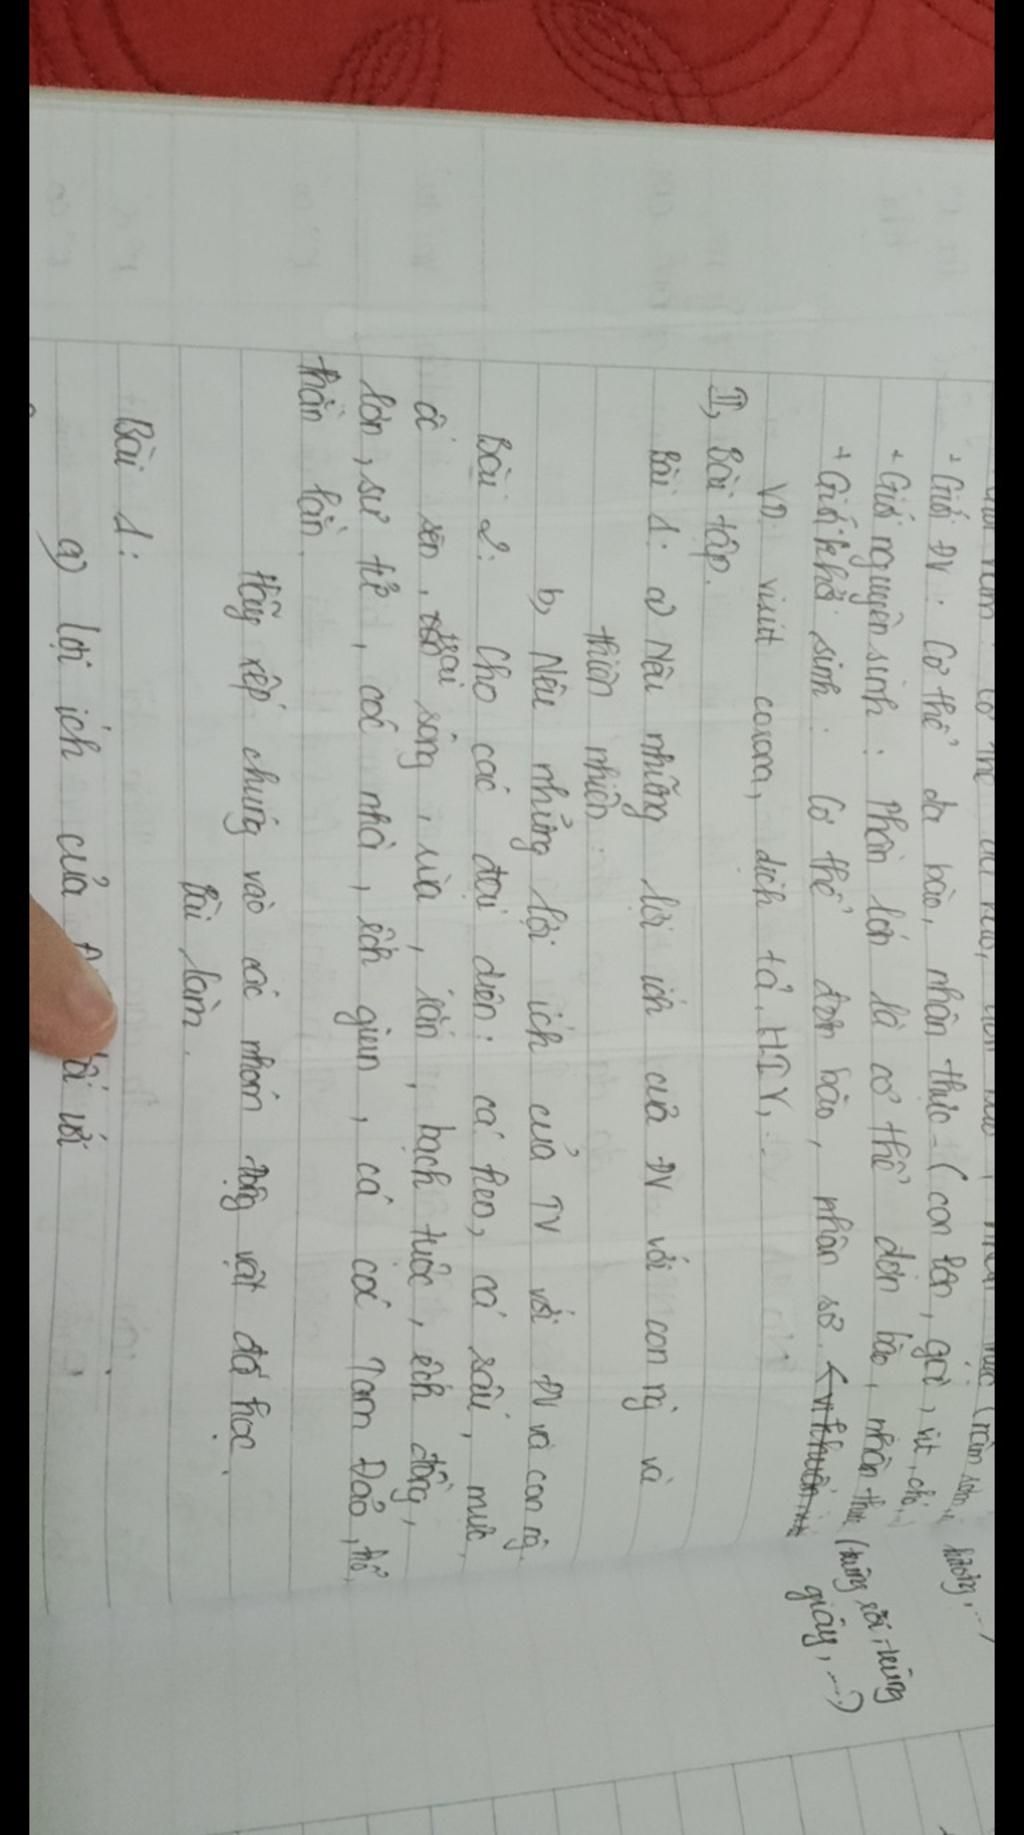 + Giới ĐV: Cơ thể đa bào, nhân thực (con lợn, gà, vịt, chó,
+ Giới nguyên sinh: Phần lớn là cơ thể đơn bào, nhân thực (trùng roi, trùng giày, ...)
+ Giới khởi sinh: Cơ thể đơn bào, nhân sơ.
VD: virut corona, dịch tả, HIV, ..
II, Bài tập.
Bài 1: a) Nêu những lợi ích của ĐV với con ng và
thiên nhiên.
b, Nêu những lợi ích của TV với ĐV và con ng.
Bài 2: Cho các đại diện: cá heo, cá sấu, mực,
ốc sên, trai sông, rùa, rắn, bạch tuộc, ếch đồng,
lợn, sư tử, cóc nhà, ếch giun, cá cóc Tam Đảo, hổ,
thằn lằn.
Hãy xếp chúng vào các nhóm động vật đã học.
Bài làm.
Bài 1:
a) lợi ích của với